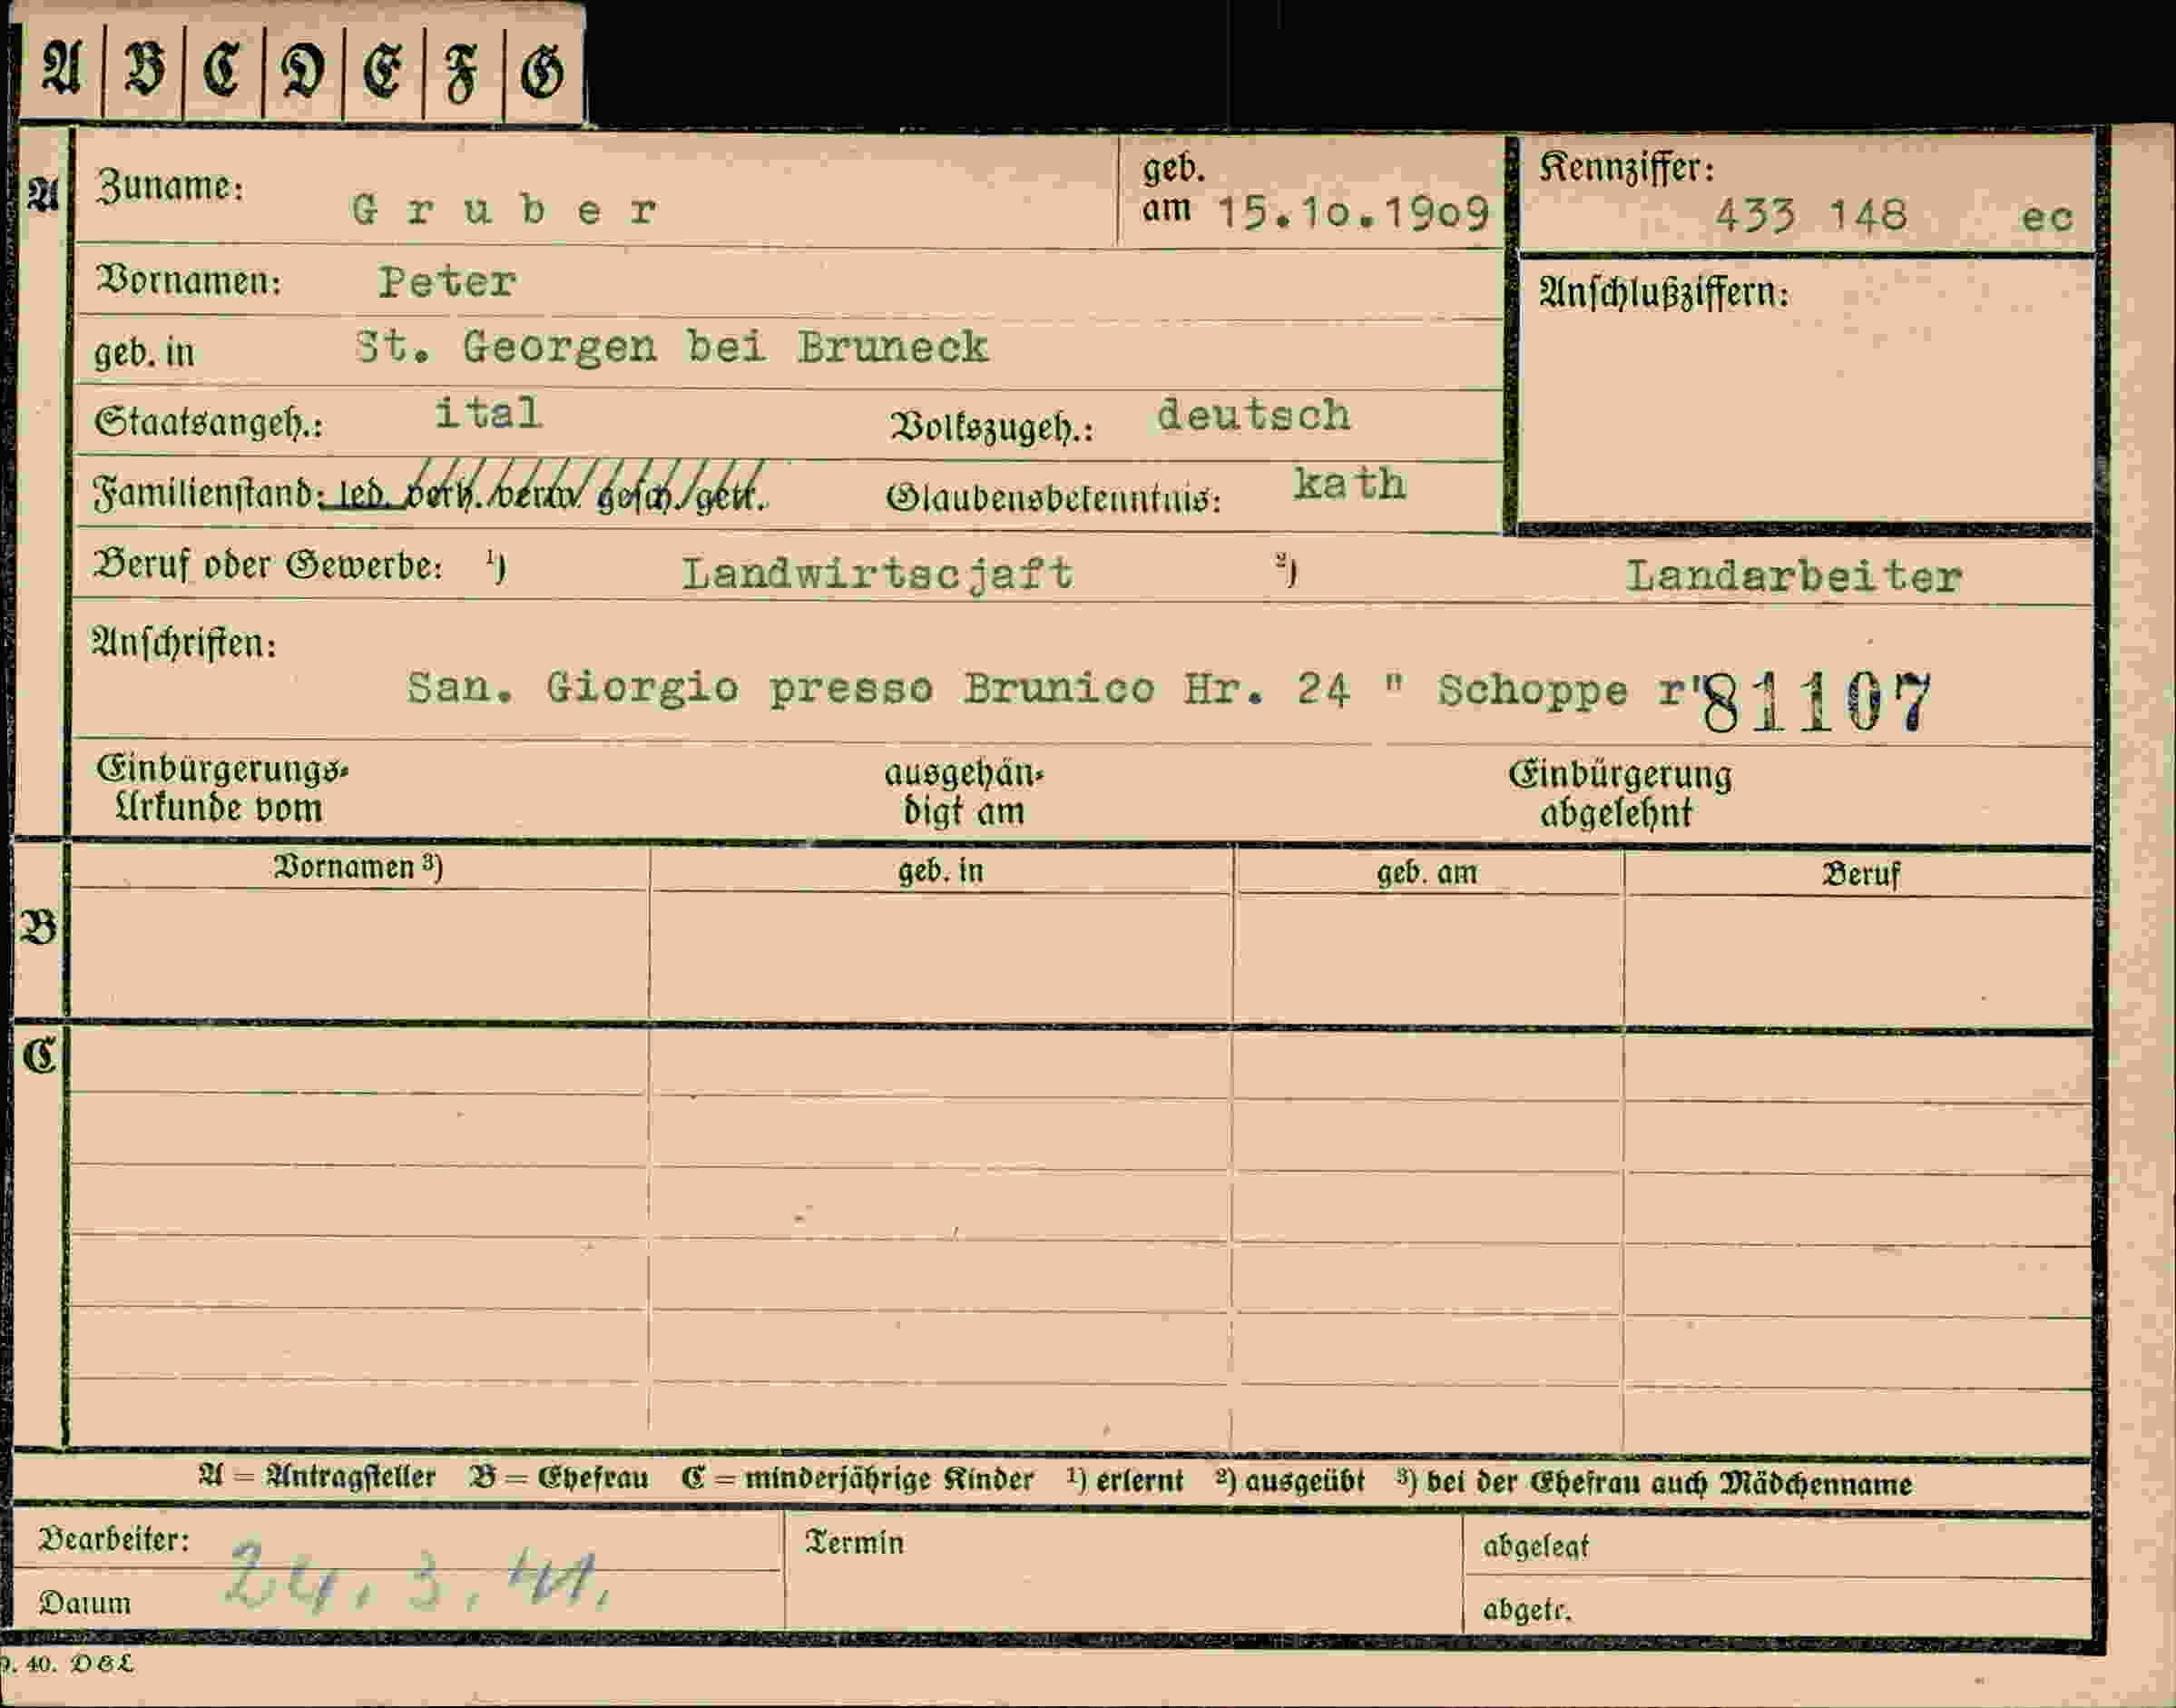 A B C D E F G
A Zuname: Gruber geb. am 15.10.1909 Kennziffer: 433 148 ec
Vornamen: Peter Anschlußziffern:
geb. in St. Georgen bei Bruneck
Staatsangeh.: ital Volkszugeh.: deutsch
Familienstand: led. verh. verw. gesch. getr. Glaubensbekenntnis: kath
Beruf oder Gewerbe: 1) Landwirtscjaft 2) Landarbeiter
Anschriften:
San. Giorgio presso Brunico Hr. 24 " Schoppe r" 81107
Einbürgerungs- ausgehän- Einbürgerung
Urkunde vom digt am abgelehnt
Vornamen 3) geb. in geb. am Beruf
B
C
A = Antragsteller B = Ehefrau C = minderjährige Kinder 1) erlernt 2) ausgeübt 3) bei der Ehefrau auch Mädchenname
Bearbeiter: Termin abgelegt
Datum 24.3.41. abgetr.
9. 40. DGL